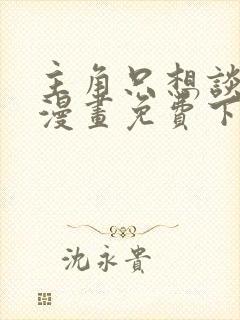 主角只想談
漫畫免費下
沈永貴